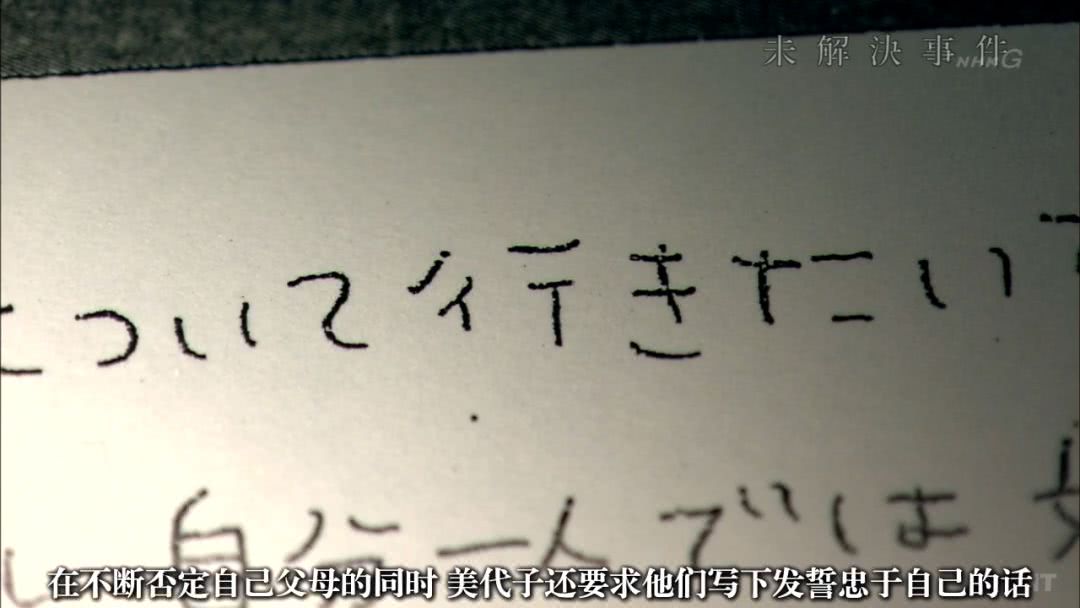 未解決事件
NHK G
について行きたい
自分一人では
在不断否定自己父母的同时 美代子还要求他们写下发誓忠于自己的话